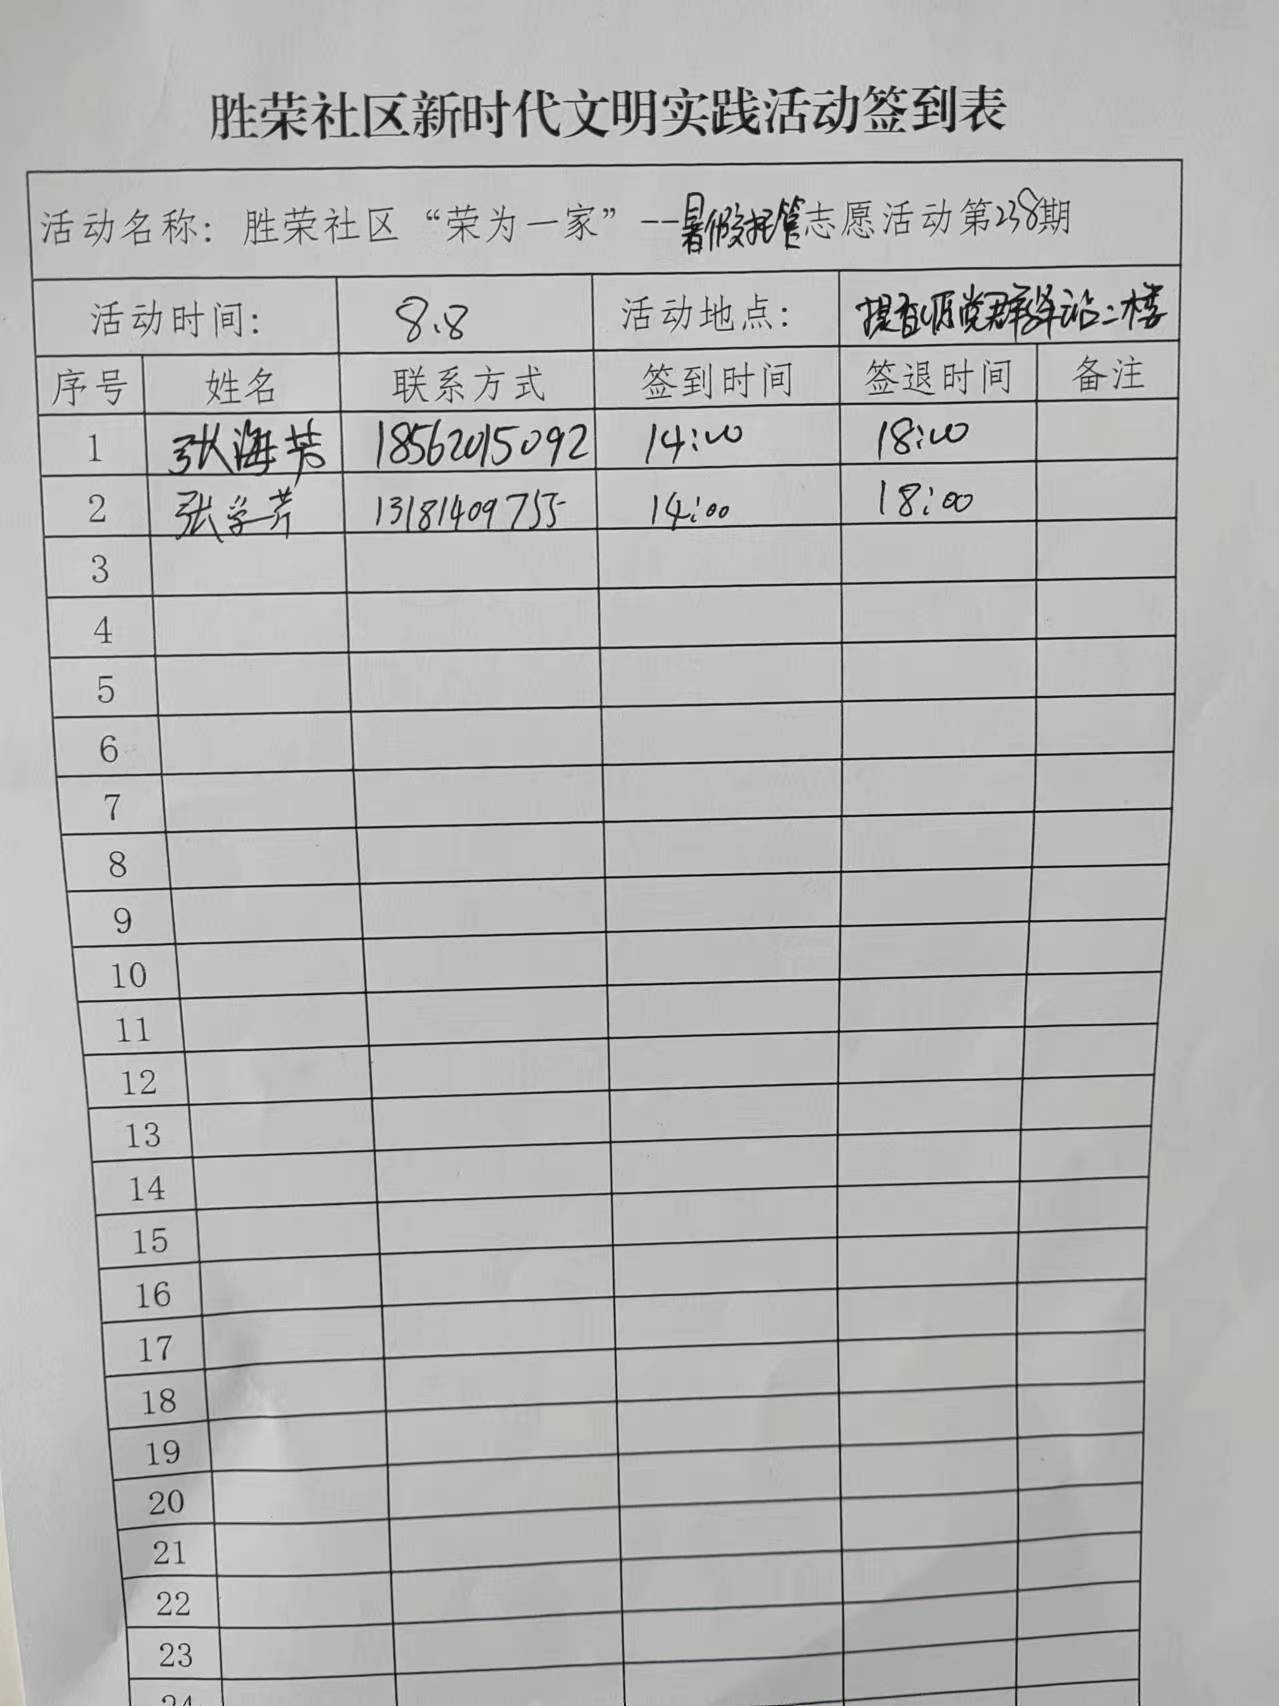 胜荣社区新时代文明实践活动签到表
活动名称：胜荣社区“荣为一家”--暑假托管志愿活动第238期
活动时间： 8.8 活动地点： 提香湾党群驿站二楼
序号 姓名 联系方式 签到时间 签退时间 备注
1 张海芳 18562015092 14:00 18:00
2 张学芹 13181409755 14:00 18:00
3
4
5
6
7
8
9
10
11
12
13
14
15
16
17
18
19
20
21
22
23
24